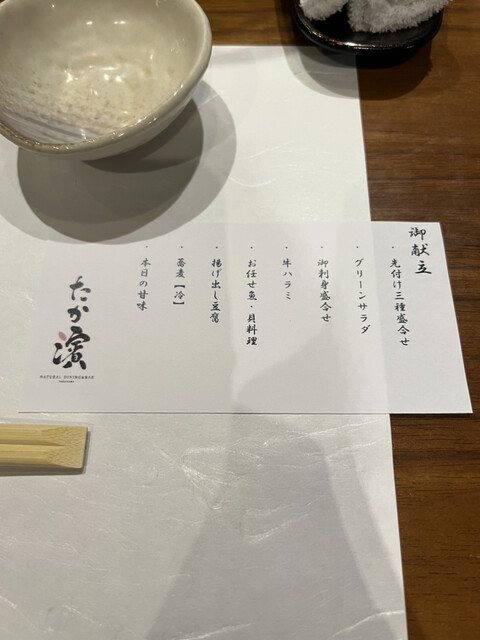 御献立
・先付け三種盛合せ
・グリーンサラダ
・御刺身盛合せ
・牛ハラミ
・お任せ魚・貝料理
・揚げ出し豆腐
・蕎麦【冷】
・本日の甘味
たか濱
NATURAL DINING&BAR
TAKAHAMA